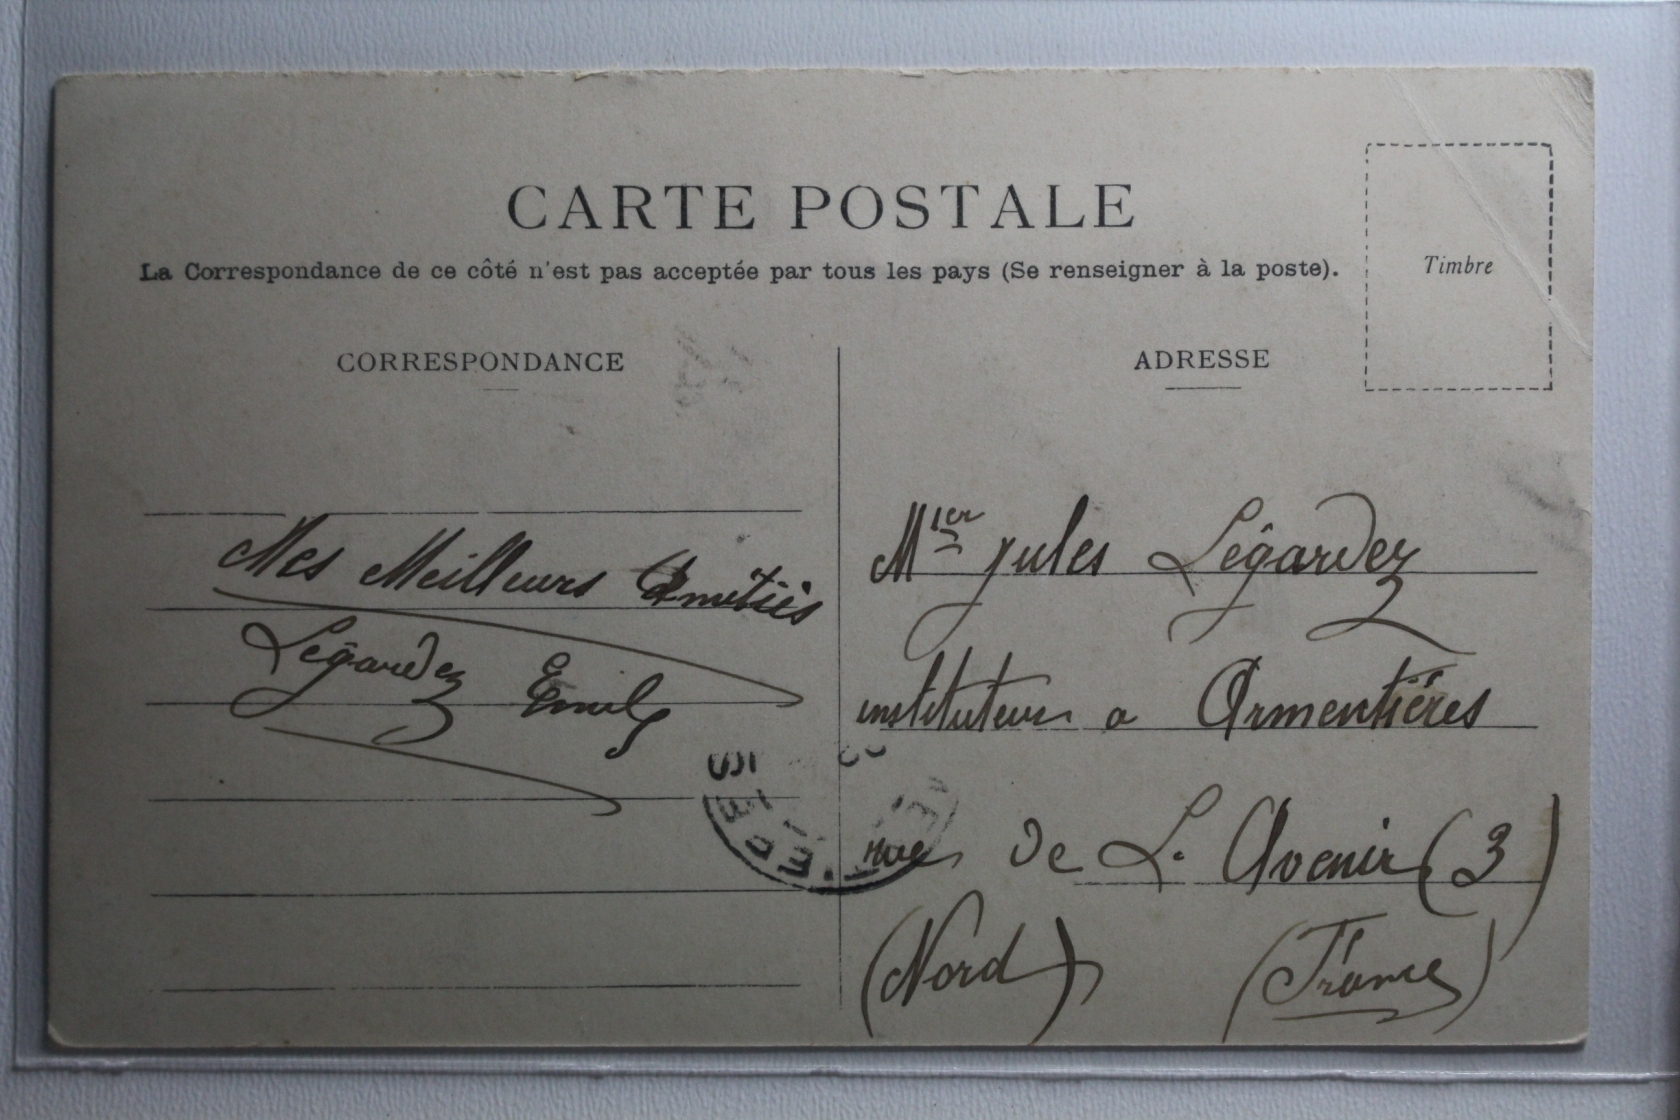 CARTE POSTALE
La Correspondance de ce côté n'est pas acceptée par tous les pays (Se renseigner à la poste).
Timbre
CORRESPONDANCE
Mes Meilleurs Amitiés
Légardez Emile
ADRESSE
Mr jules Légardez
instituteur a Armentiéres
rue de L. Avenir (3)
(Nord) (France)